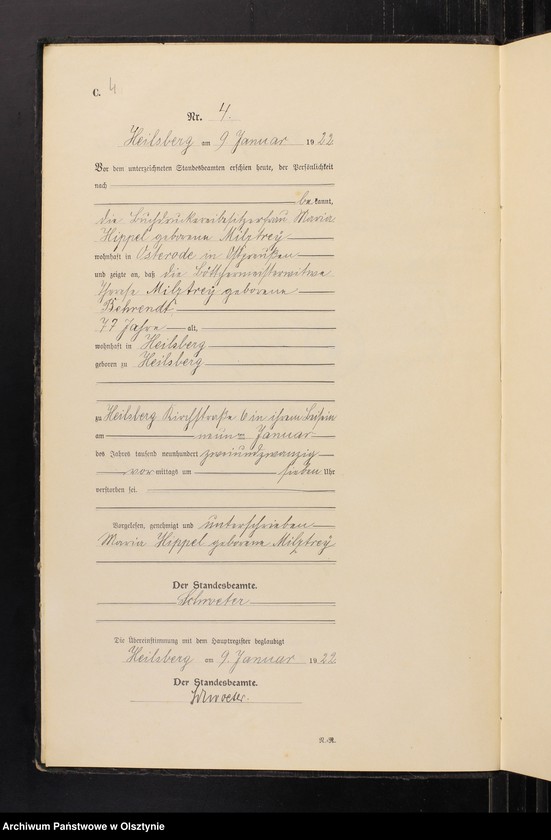 C. 4
Nr. 4.
Heilsberg am 9 Januar 1922
Vor dem unterzeichneten Standesbeamten erschien heute, der Persönlichkeit
nach
be kannt,
die Buchdruckereibesitzerfrau Maria
Hippel geborene Milztrey
wohnhaft in Osterode in Ostpreußen
und zeigte an, daß die Böttchermeisterwitwe
Therese Milztrey geborene
Behrendt
77 Jahre alt,
wohnhaft in Heilsberg
geboren zu Heilsberg
zu Heilsberg Kirchstraße 6 in ihrem Beisein
am neunten Januar
des Jahres tausend neunhundert zweiundzwanzig
vor mittags um sieben Uhr
verstorben sei.
Vorgelesen, genehmigt und unterschrieben
Maria Hippel geborene Milztrey
Der Standesbeamte.
Schroeter
Die Übereinstimmung mit dem Hauptregister beglaubigt
Heilsberg am 9. Januar 1922
Der Standesbeamte.
Schroeter.
Archiwum Państwowe w Olsztynie